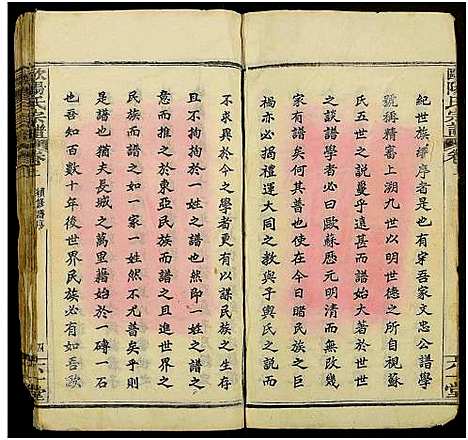 歐陽氏宗譜
紀世族繹序者是也有穿吾家文忠公譜學
號稱精審上溯九世以明世德之所自視蘇
氏五世之說曼乎遠甚而譜始大著於世世
之談譜學者必曰歐蘇歷元明清而無改幾
譜有矣何其普也家在今日賭民族之
禍亦必揭禮運大同之教與子輿氏之說而
不求異於今之學者更有以謀民族之生存
且不拘拘於一姓之譜也然印一姓之譜之
意而推之於東亞民族而譜之且進世界之
民族而譜之如一家一姓然不尤普矣乎則
是譜也猶夫長城之萬里藉始於一磚一石
也吾知百數十年後世界民族必有吾歐
歐陽氏宗譜
四
六一堂
六一堂